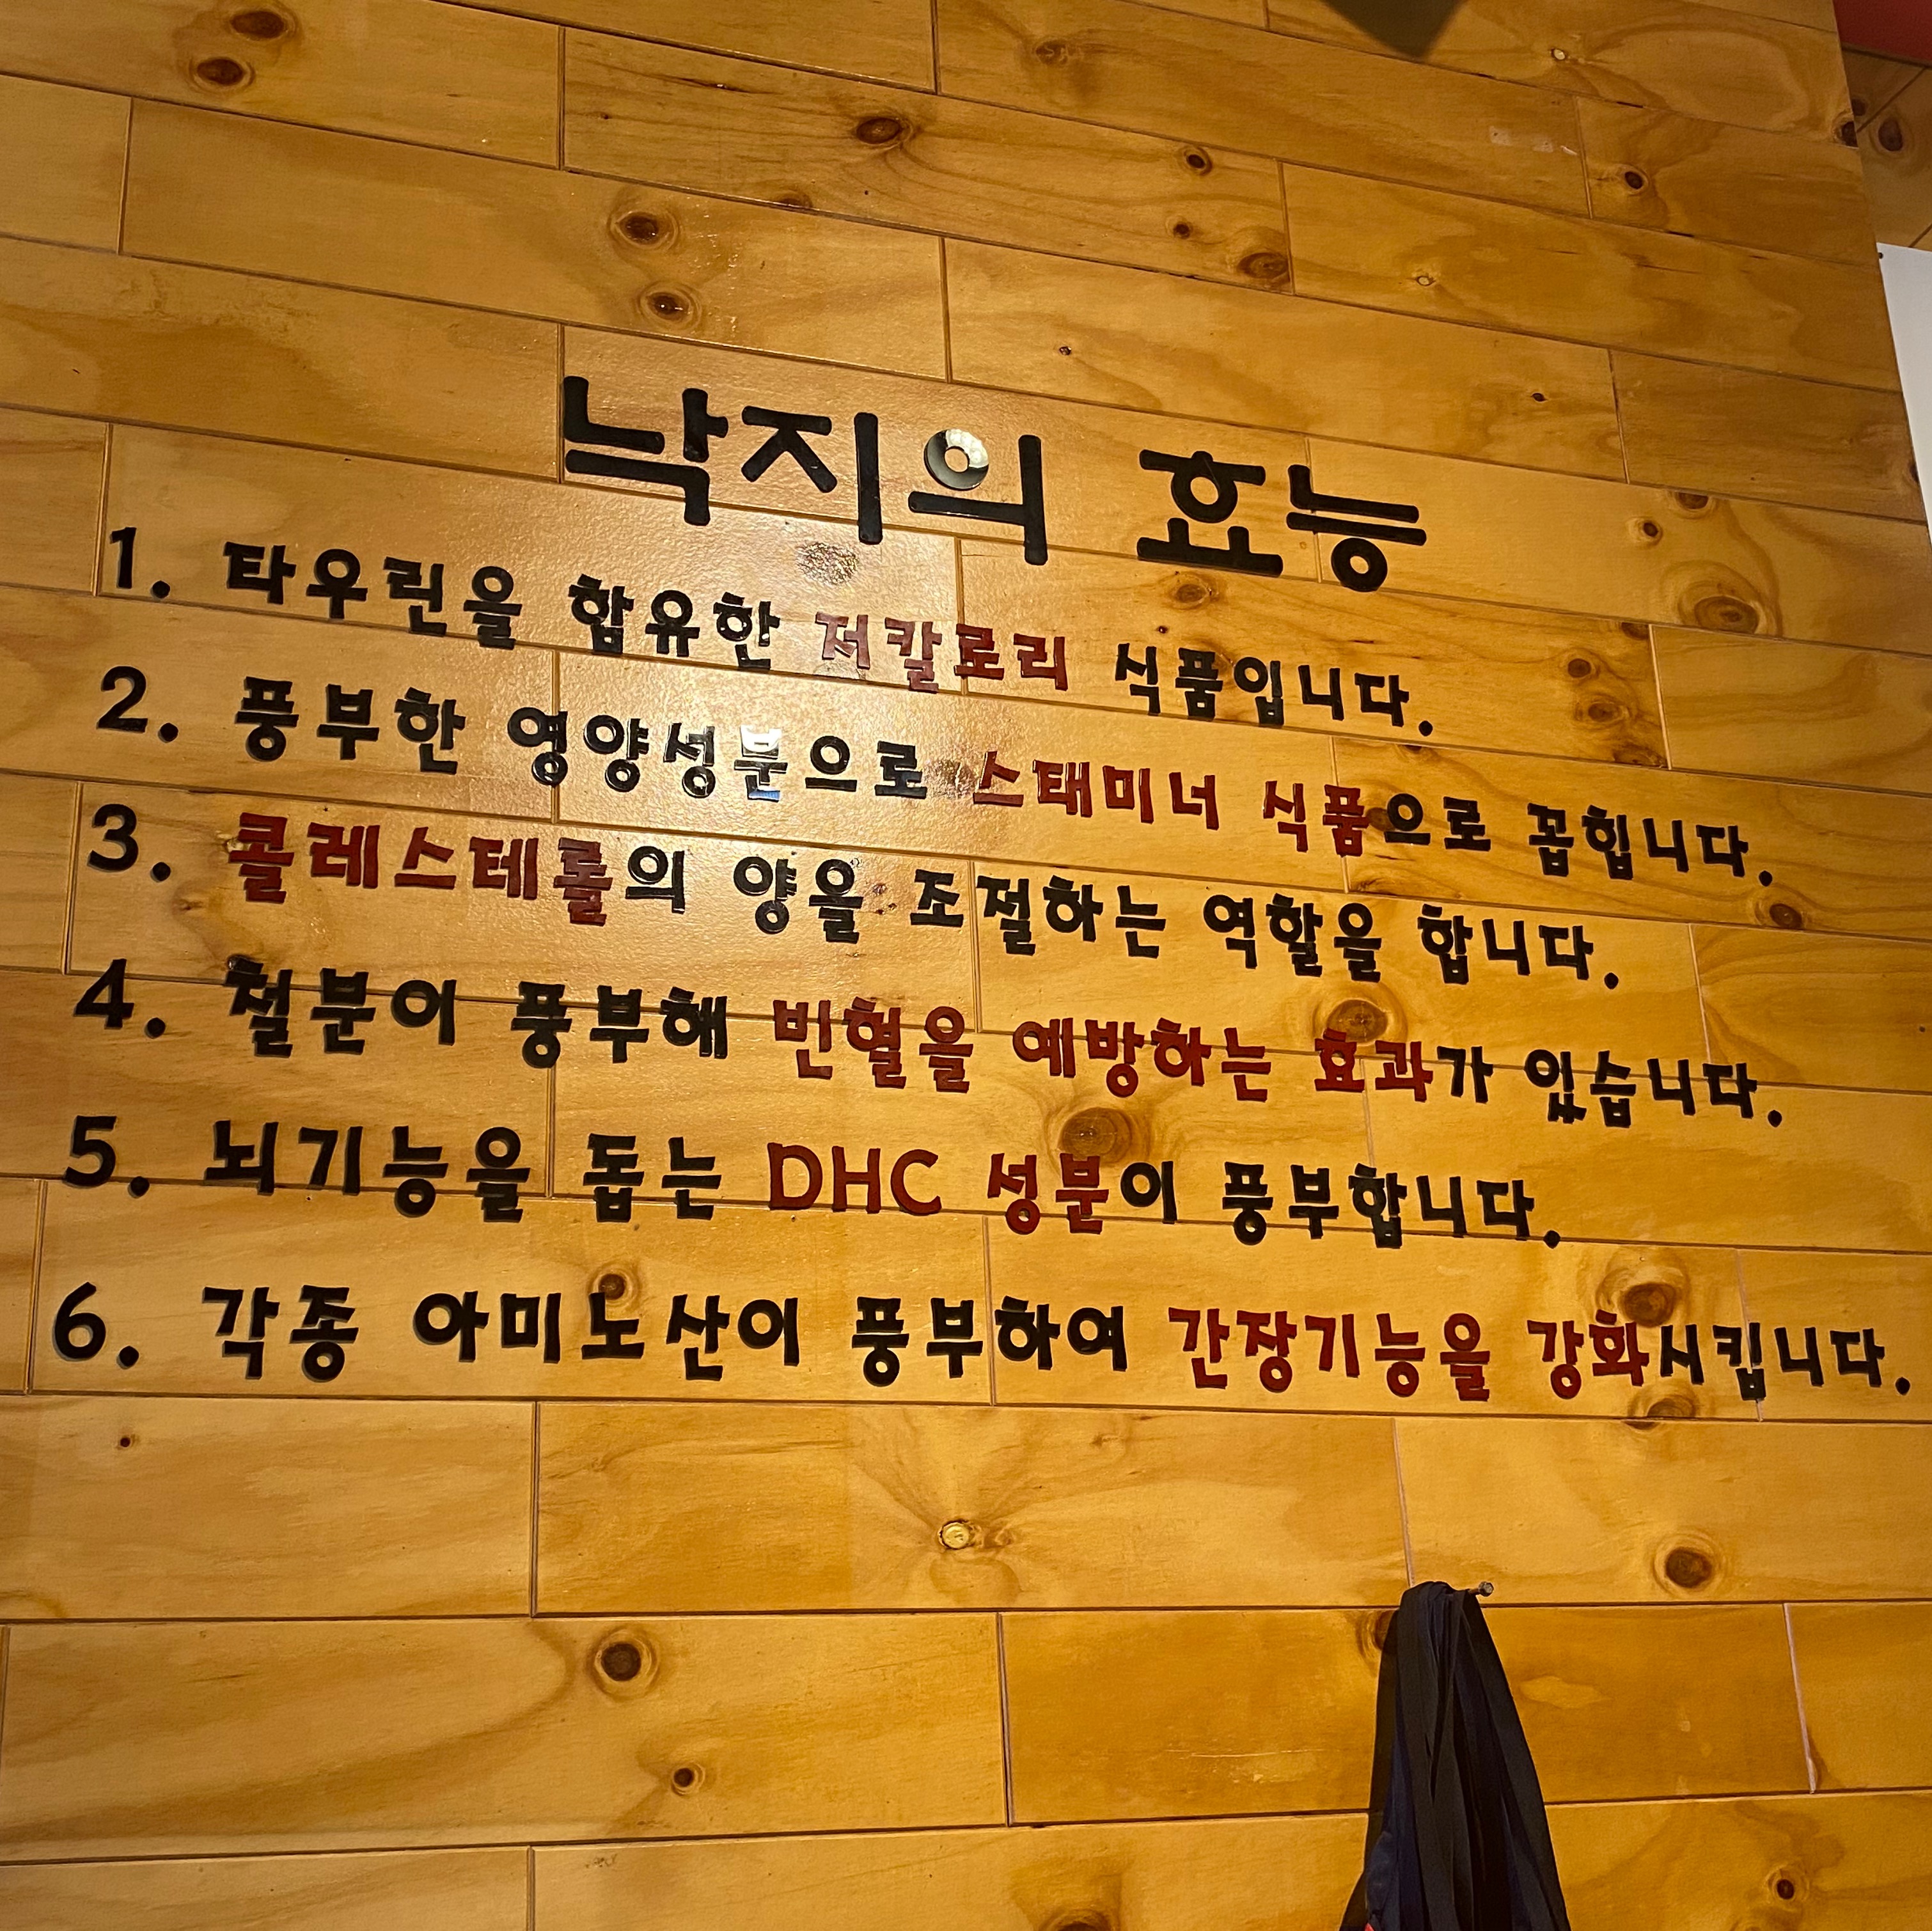 낙지의 효능
1. 타우린을 함유한 저칼로리 식품입니다.
2. 풍부한 영양성분으로 스태미너 식품으로 꼽힙니다.
3. 콜레스테롤의 양을 조절하는 역할을 합니다.
4. 철분이 풍부해 빈혈을 예방하는 효과가 있습니다.
5. 뇌기능을 돕는 DHC 성분이 풍부합니다.
6. 각종 아미노산이 풍부하여 간장기능을 강화시킵니다.